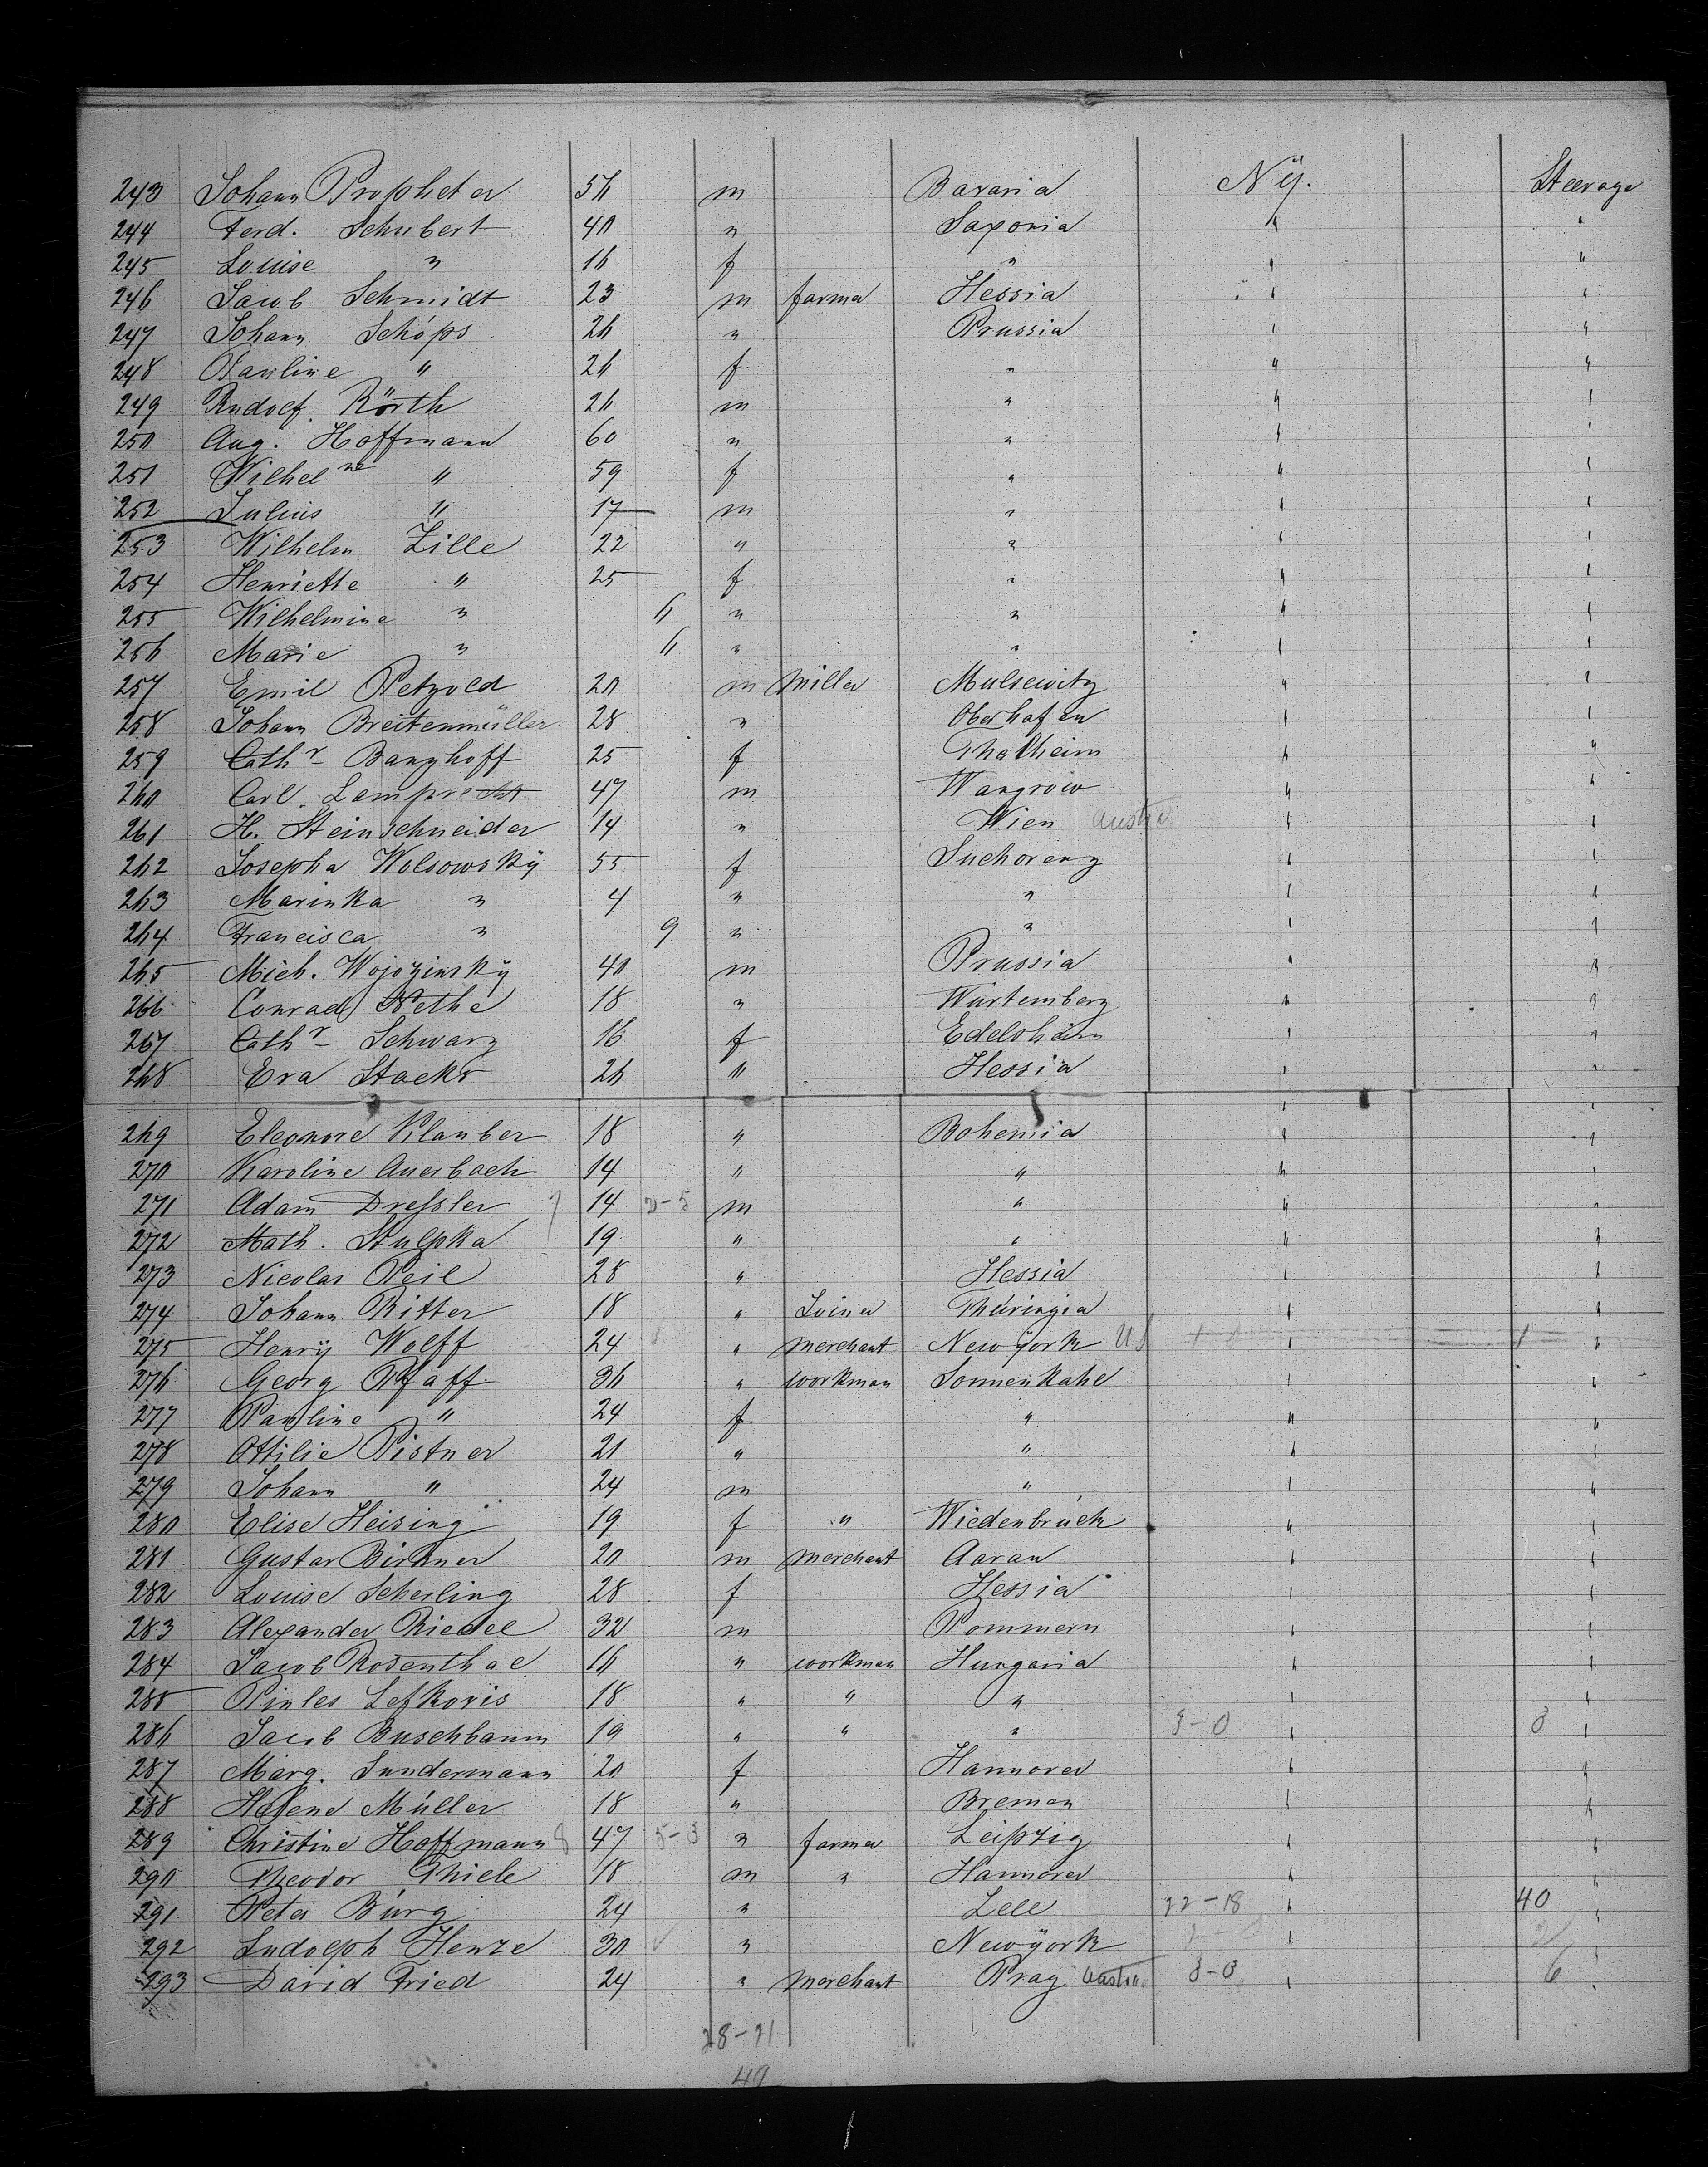 243 Johann Propheter 56 m Bavaria N.Y. Steerage
244 Ferd. Schubert 40 " Saxonia " "
245 Louise " 16 f " " "
246 Jacob Schmidt 23 m farmer Hessia " "
247 Johann Schöps 26 " Prussia " "
248 Pauline " 26 f " " "
249 Rudolf. Körth 26 m " " "
250 Aug. Hoffmann 60 " " " "
251 Wilhel ne " 59 f " " "
252 Julius " 17 m " " "
253 Wilhelm Zille 22 " " " "
254 Henriette " 25 f " " "
255 Wilhelmine " 6 " " " "
256 Marie " 6 " " " "
257 Emil Petzold 20 m Miller Mulsewitz " "
258 Johann Breitenmüller 28 " Oberhafen " "
259 Cathr Banzhoff 25 f Thalheim " "
260 Carl. Lamprecht 47 m Wangrow " "
261 H. Steinschneider 14 " Wien Austria " "
262 Josepha Wolsowsky 55 f Suchorenz " "
263 Marinka " 4 " " " "
264 Francisca " 9 " " " "
265 Mich. Wojozinsky 40 m Prussia " "
266 Conrad Nethe 18 " Würtemberg " "
267 Cathr Schwarz 16 f Edelsheim " "
268 Eva Stocks 26 " Hessia " "
269 Eleonore Klauber 18 " Bohemia " "
270 Karoline Auerbach 14 " " " "
271 Adam Dressler 7 14 2-5 m " " "
272 Math. Stulpka 19 " " " "
273 Nicolas Peil 28 " Hessia " "
274 Johann Ritter 18 " Joiner Thüringia " "
275 Henry Wolff 24 " merchant New york US " 1 "
276 Georg Pfaff 36 " workman Sonnenkahl " "
277 Pauline " 24 f " " "
278 Ottilie Pistner 21 " " " "
279 Johann " 24 m " " "
280 Elise Heising 19 f " Wiedenbrück " "
281 Gustav Birkner 20 m merchant Aarau " "
282 Louise Scherling 28 f Hessia " "
283 Alexander Riedel 32 m Pommern " "
284 Jacob Rosenthal 16 " workman Hungaria " "
285 Pinles Lefkovis 18 " " " " "
286 Jacob Buschbaum 19 " " " 3-0 " 3 "
287 Marg. Sundermann 20 f Hannover " "
288 Helene Müller 18 " Bremen " "
289 Christine Hoffmann 8 47 5-3 " farmer Leipzig " "
290 Theodor Thiele 18 m " Hannover " "
291 Peter Bürg 24 " Lele 22-18 " 40 "
292 Ludolph Henze 30 " New york " "
293 David Fried 24 " Merchant Prag Austria 3-3 " 6 "
28-21
49